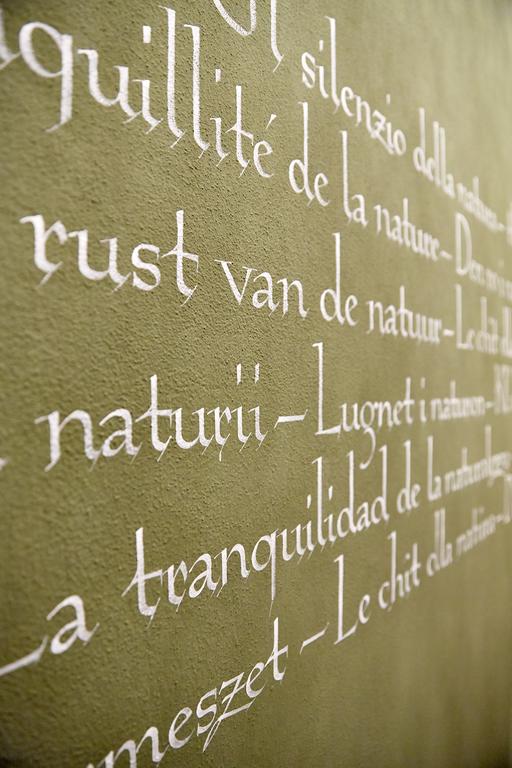 silenzio della natura –
quillité de la nature –
rust van de natuur – Le chit
naturii – Lugnet i naturen –
La tranquilidad de la naturaleza
rmeszet – Le chit dla natüra –